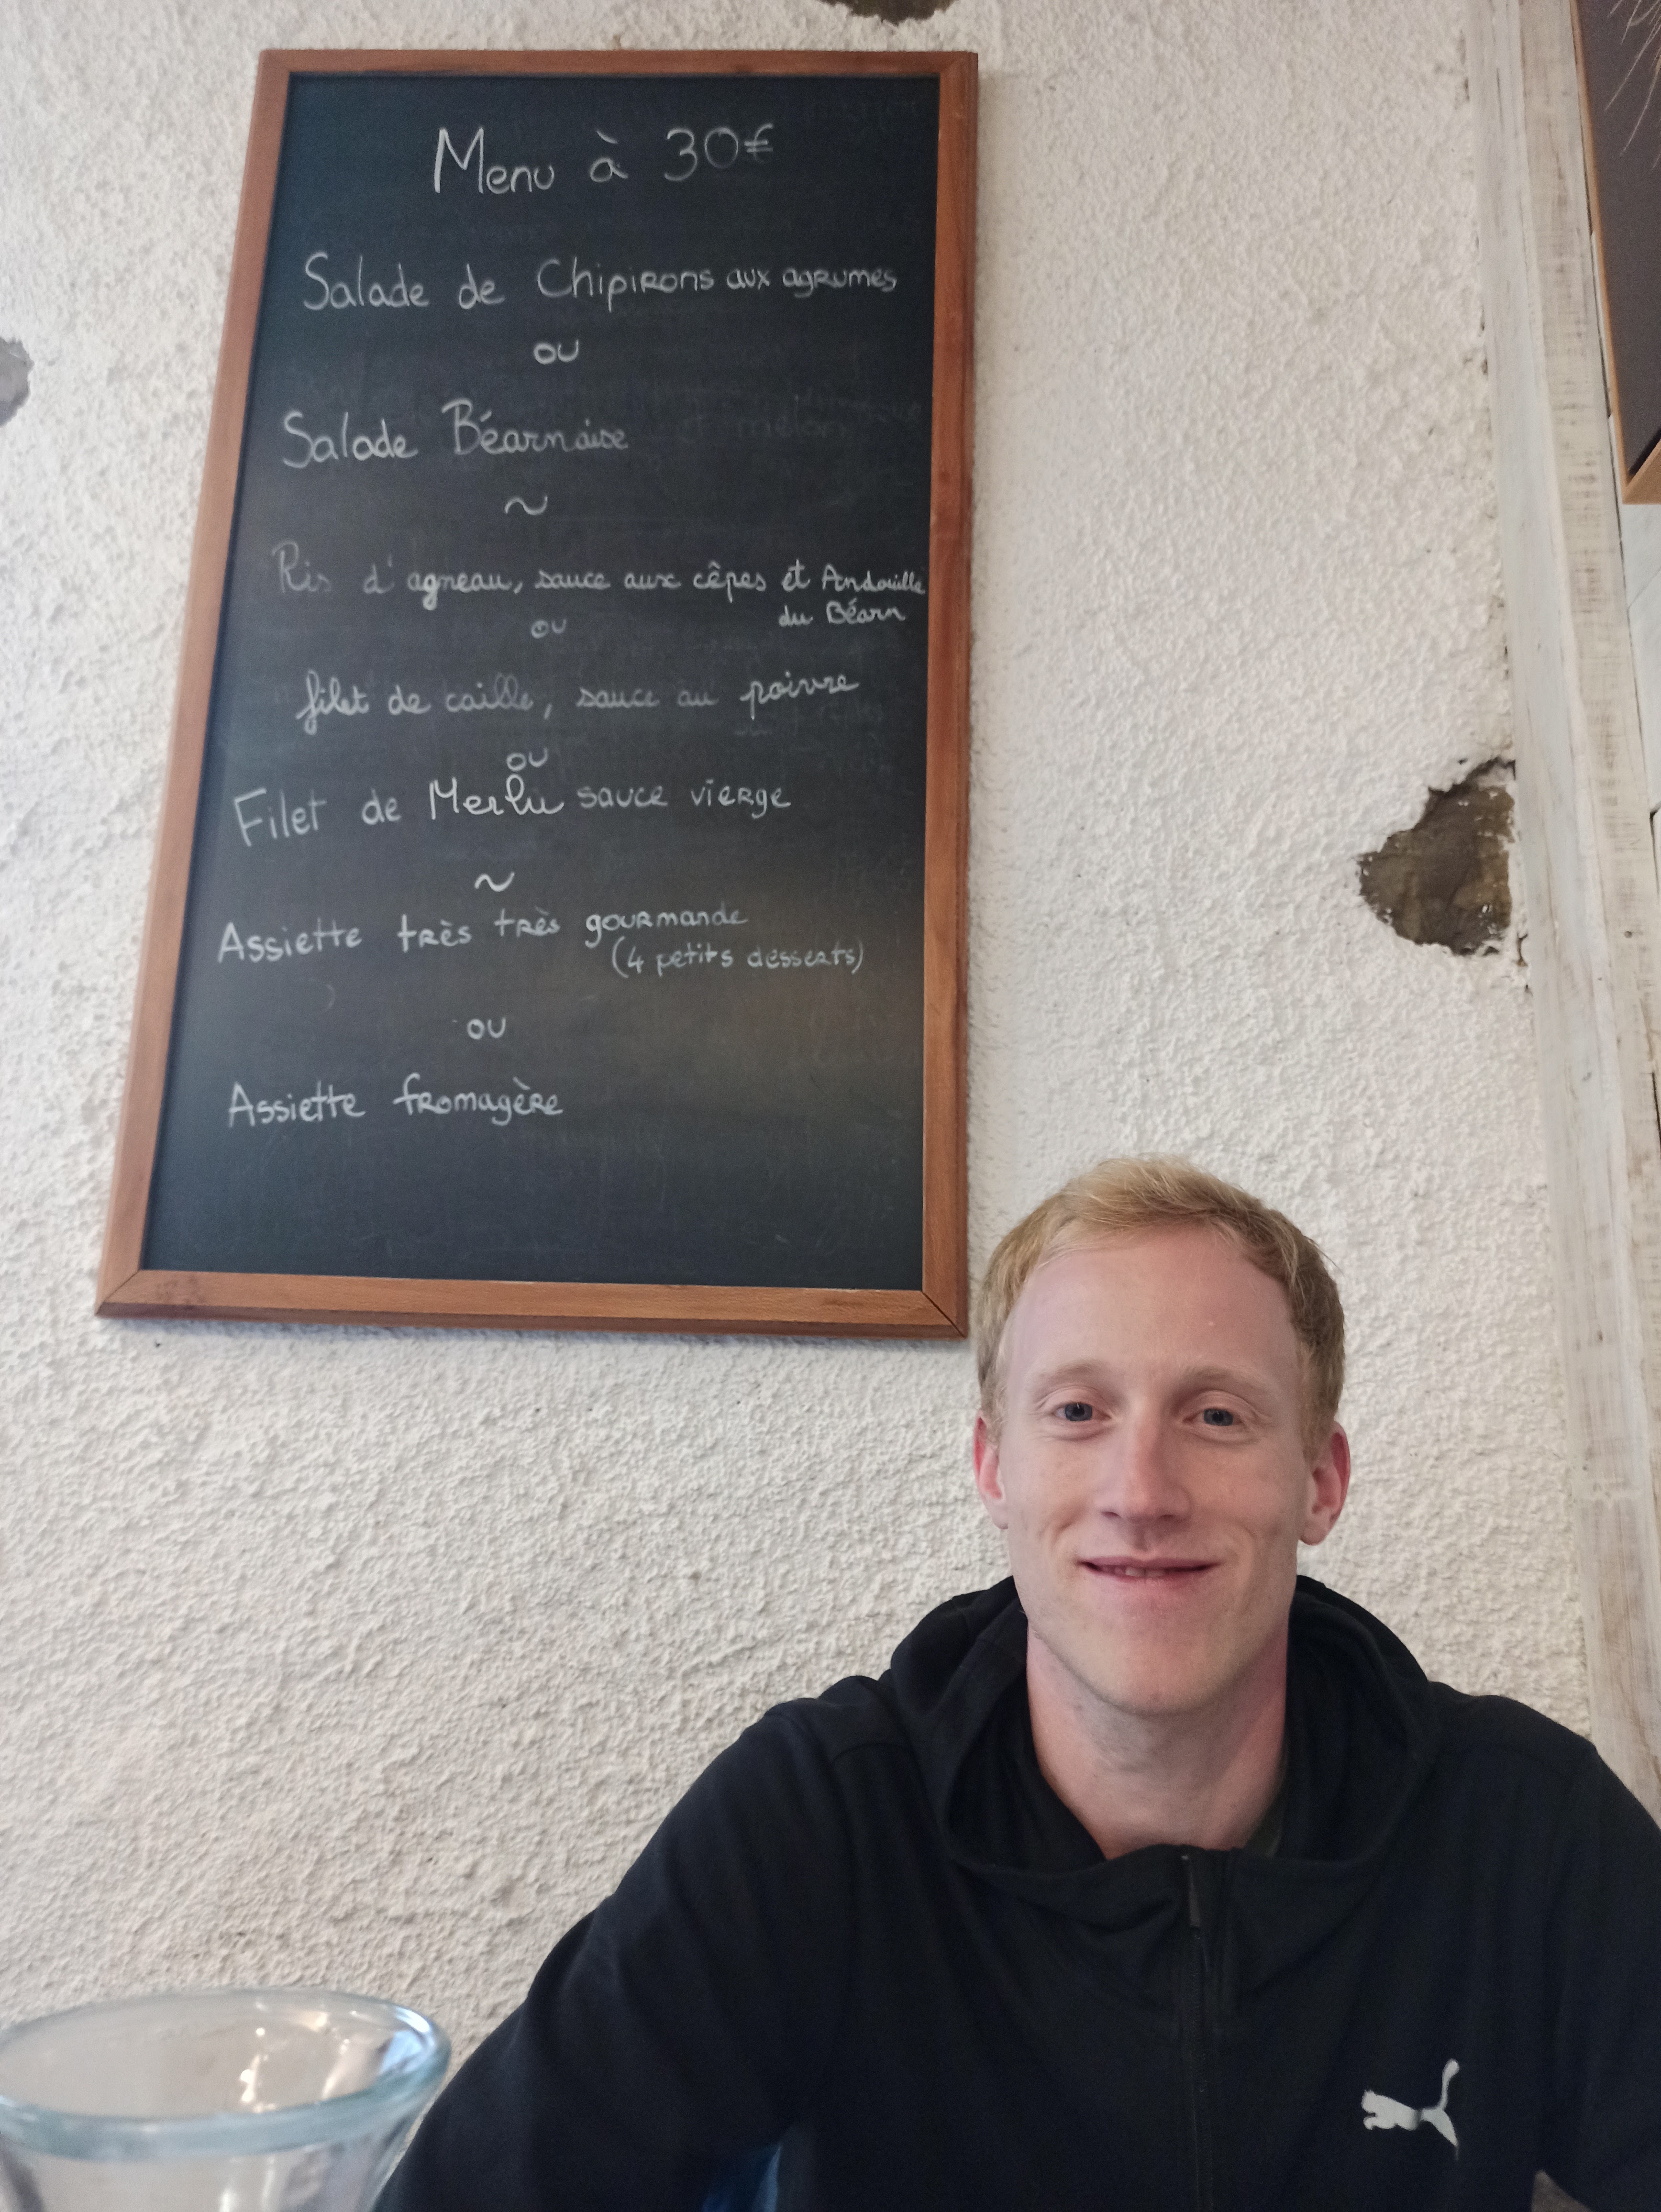 Menu à 30€
Salade de Chipirons aux agrumes
ou
Salade Béarnaise
~
Ris d'agneau, sauce aux cêpes et Andouille
du Béarn
ou
filet de caille, sauce au poivre
ou
Filet de Merlu sauce vierge
~
Assiette très très gourmande
(4 petits desserts)
ou
Assiette fromagère